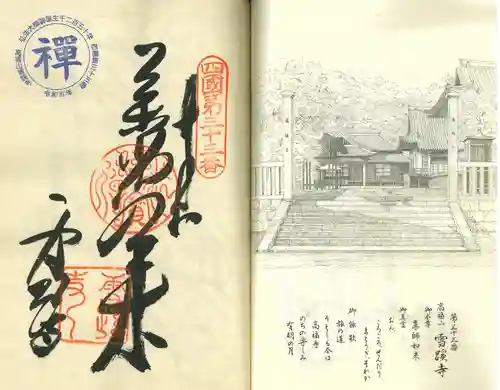 弘法大師御誕生千二百五十年
禪
四國第三十三番
薬師如来
第三十三番
高福山 雪蹊寺
御本尊
薬師如来
御真言
おん
ころころ せんだり
まとうぎ そわか
御詠歌
旅の道
うえしも今は
高福寺
のちの楽しみ
有明の月